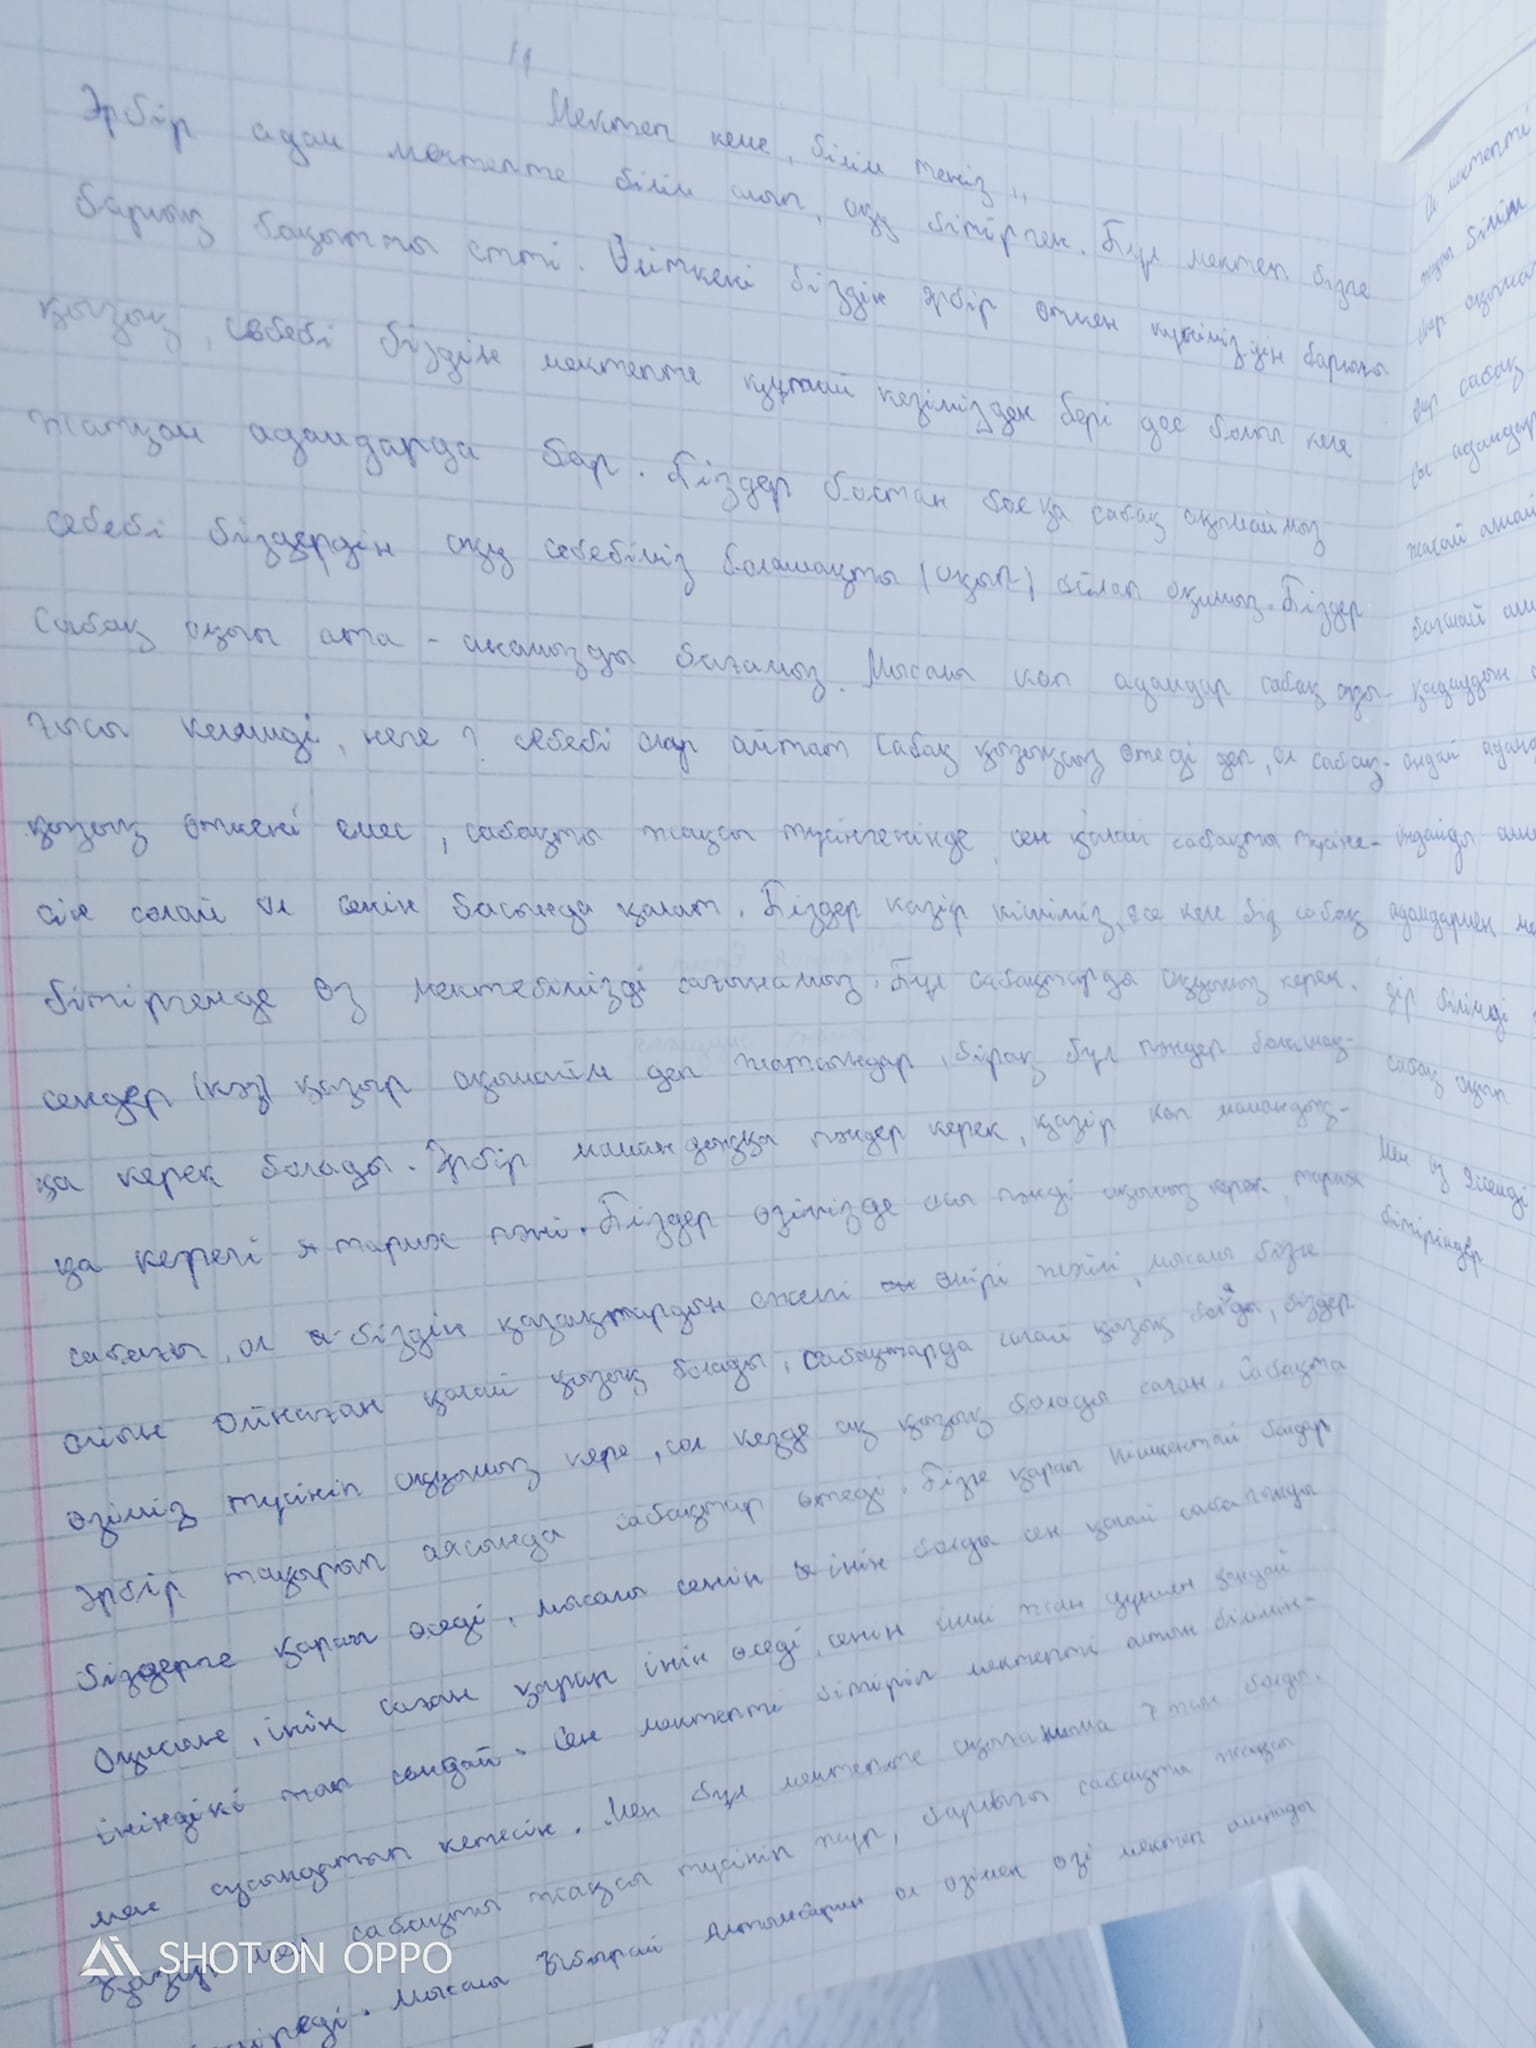 "Мектеп кеме, білім теңіз"
Әрбір адам мектепте білім алып, оқу бітірген. Бұл мектеп бізге
барлық бақытты етті. Өйткені біздің әрбір өткен күніміздің барлығы
қызық, себебі біздің мектепте құтай кезімізден бері дос болып келе
жатқан адамдарда бар. Біздер бостан босқа сабақ оқымаймыз
себебі біздердін оқу себебіміз болашақты (оқып) ойлап оқимыз. Біздер
Сабақ оқып ата-анамызды бағамыз. Мысалы көп адамдар сабақ оқы-
ғысы келмиді, неге? себебі олар айтат сабақ қызықсыз өтеді деп, ол сабақ-
қызық өткені емес, сабақты жақсы түсінгенінде, сен қалай сабақты түсіне-
сің солай ол сенін басында қалат. Біздер казір кішіміз, өсе келе біз сабақ
бітіргенде өз мектебімізді сағынамыз. Бұл сабақтарды оқуымыз керек.
сендер (каз) қазыр оқымайм деп жатсындар, бірақ бұл пәндер болашақ-
қа керек болады. Әрбір мамандыққа пәндер керек, қазір көп мамандық-
қа керегі тарих пәні. Біздер өзімізде осы пәнді оқымыз керек, тарих
сабағы, ол біздін қазақтардын ежелі өмірі жәйлі, мысалы бізге
ойын ойнаған қалай қызық болады, сабақтарда солай қызық болады, біздер
өзіміз түсініп оқуымыз кере, сол кезде оқу қызық болады саған. Сабақта
Әрбір тақырып аясында сабақтар өтеді. Бізге қарап кішкентай балдар
біздерге қарап өседі, мысалы сенін інін болды сен қалай сабағынды
Оқисаң, інін саған қарап інін өседі, сенін ішкі жан дүниен қандай
ініндікі так сондай. Сен мектепті бітіріп мектепті алтын білімін-
мен сусындатып кетесін. Мен бұл мектепте оқығаныма 7 жыл болды.
Қазіргі сабақты жақсы түсініп жүр, барлығы сабақты жақсы
Мысалы Ыбырай Алтынсарин ол өзімен өзі мектеп ашады
Ол мектепті
білім
олар
әр сабақ
сы адамдар
жасай алмай
бағалай
қадаудын
ондай адам
адамдармен
дір білімді
сабақ оқып
Мен өз
бітіріндер
SHOT ON OPPO